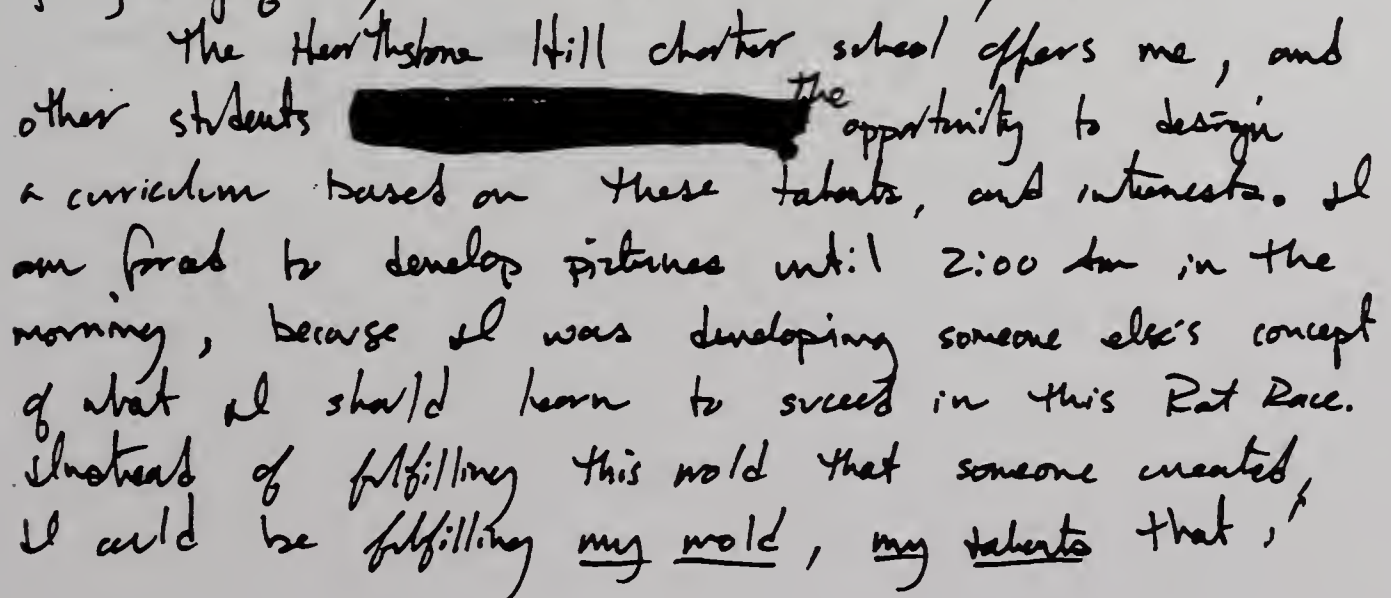 The Hearthstone Hill charter school offers me, and
other students the opportunity to design
a curriculum based on these talents, and interests. I
am forced to develop pictures until 2:00 Am in the
morning, because I was developing someone else's concept
of what I should learn to succeed in this Rat Race.
Instead of fulfilling this mold that someone created,
I could be fulfilling my mold, my talents that